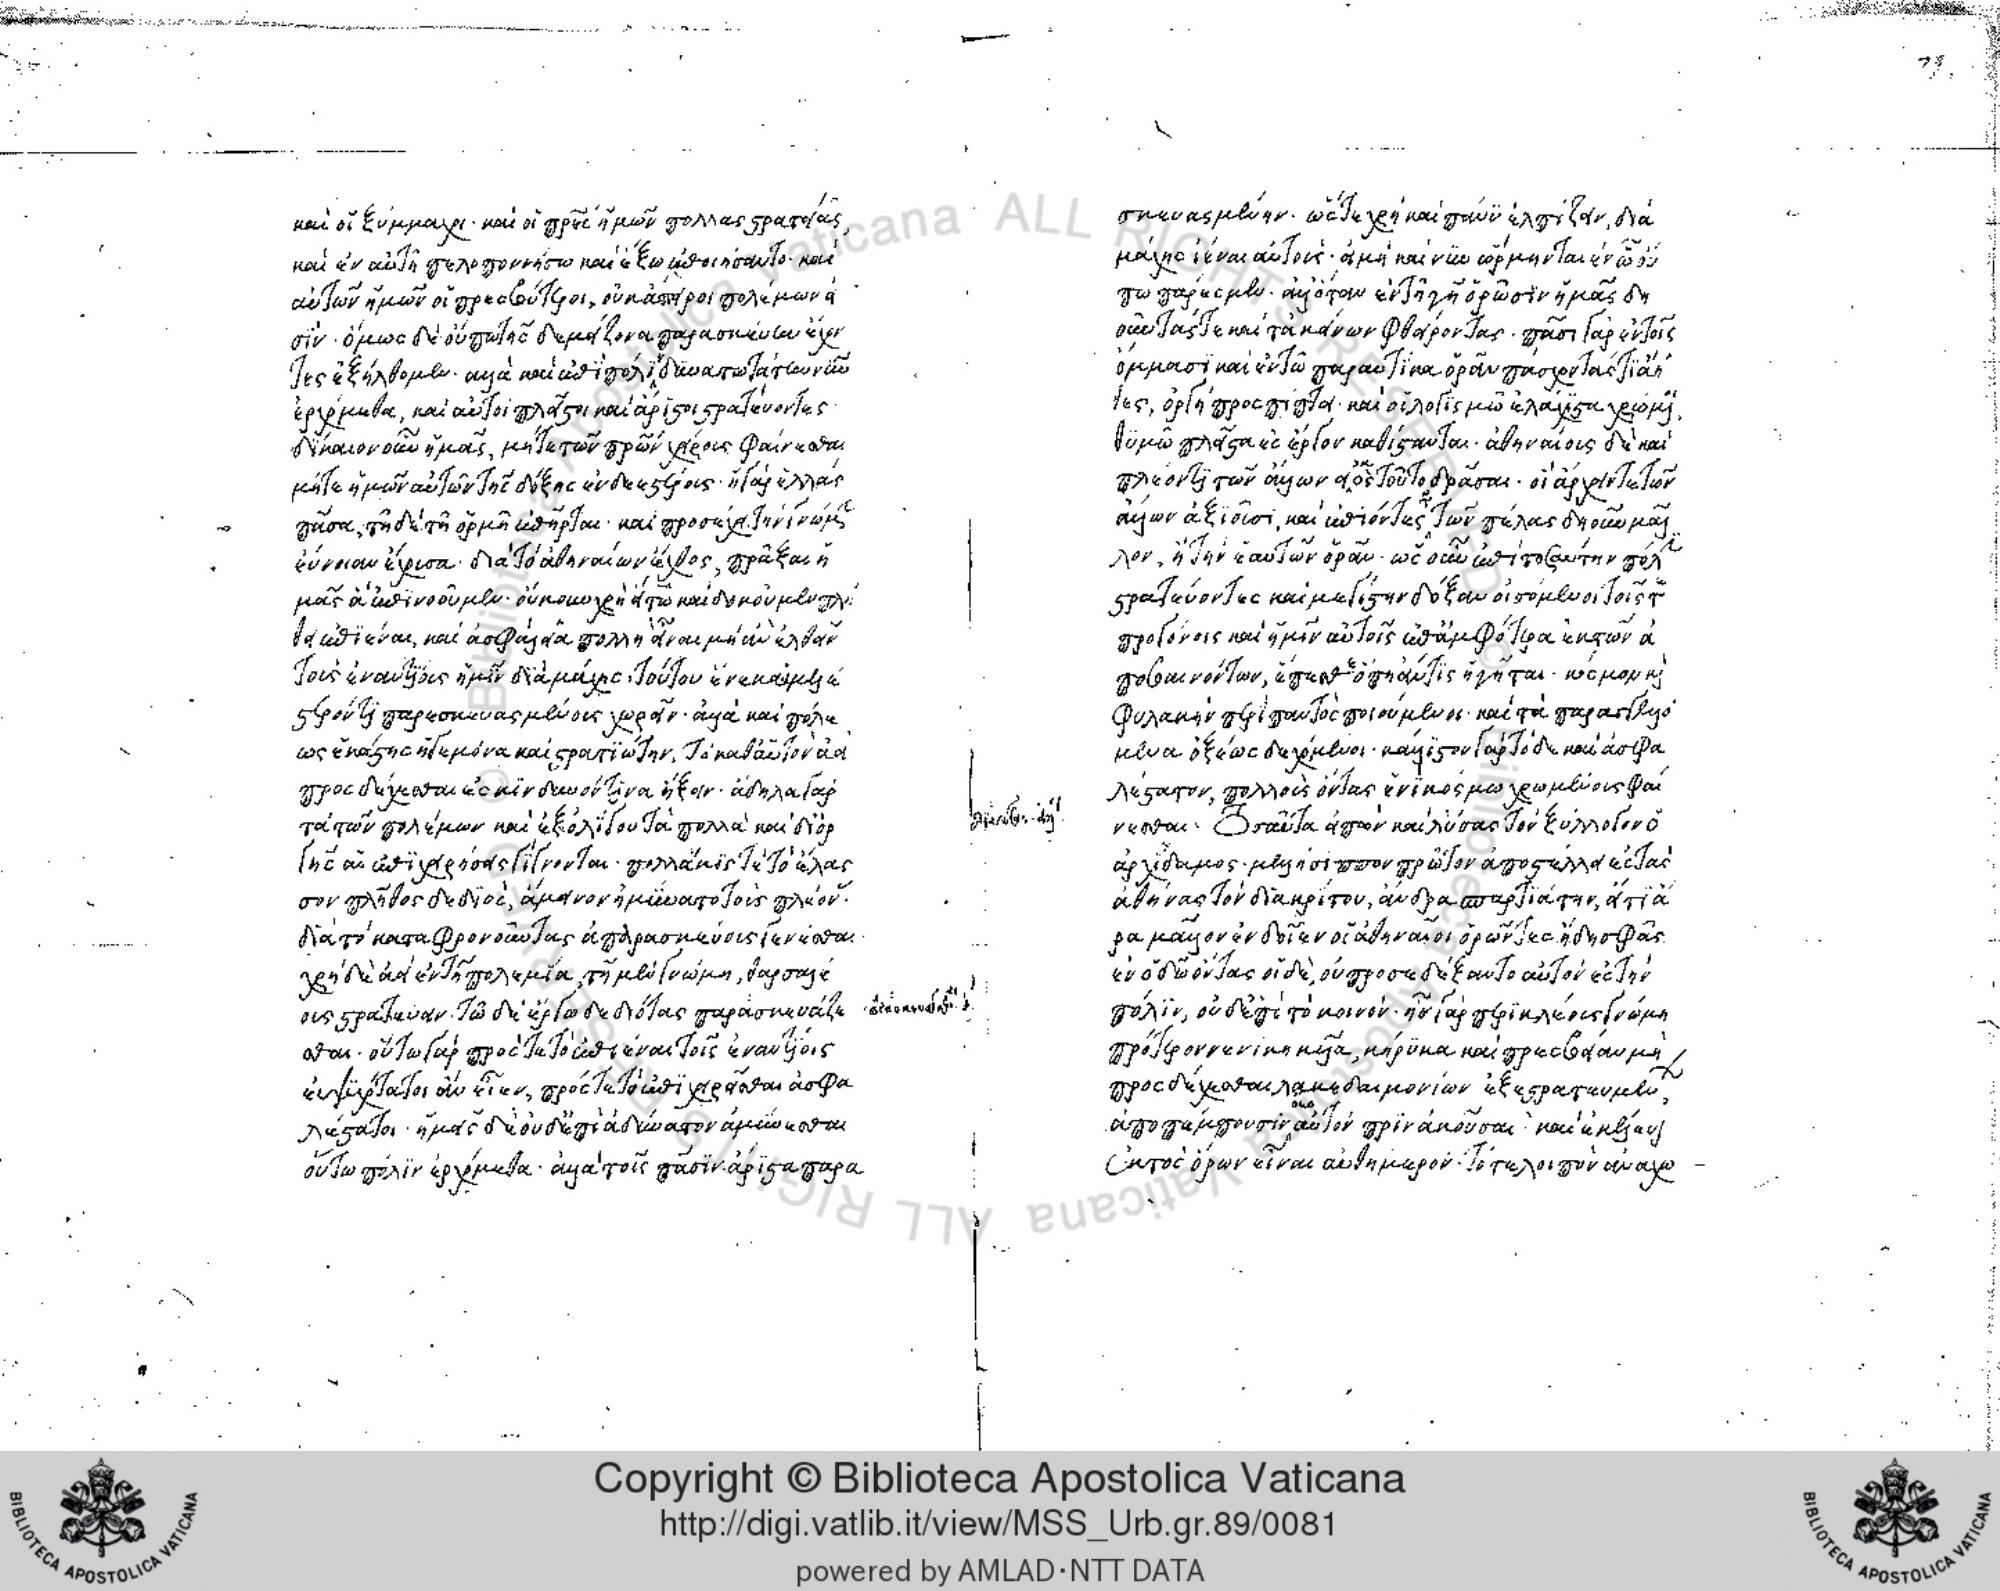 καὶ οἱ ξύμμαχοι· καὶ οἱ πρ̅ες ἡμῶν πολλὰς στρατείας
καὶ ἐν αὐτῆ πελοποννήσω καὶ ἔξω ἐποιήσαντο· καὶ
αὐτῶν ἡμῶν οἱ πρεσβύτεροι, οὐκ ἄπειροι πολέμων εἰ
σίν· ὅμως δὲ οὔπω τῆς δε μείζονα παρασκευὴν ἔχον
τες ἐξήλθομεν· ἀλλὰ καὶ ἐπὶ πόλιν δυνατωτάτην νῦν
ἐρχόμεθα, καὶ αὐτοὶ πλεῖστοι καὶ ἄριστοι στρατεύοντες·
δίκαιον οὖν ἡμᾶς, μήτε τῶν πρ̅ων χείρους φαίνεσθαι
μήτε ἡμῶν αὐτῶν τῆς δόξης ἐνδεεστέρους· ἡ γὰρ ἑλλὰς
πᾶσα, τῆδε τῆ ὁρμῆ ἐπῆρται· καὶ προσέχει τὴν γνώμην
εὔνοιαν ἔχουσα· διὰ τὸ ἀθηναίων ἔχθος, πρᾶξαι ἡ
μᾶς ἃ ἐπινοοῦμεν· οὔκουν χρὴ εἴ τω καὶ δοκοῦμεν πλή
θει ἐπιέναι, καὶ ἀσφάλεια πολλὴ εἶναι μὴ ἂν ἐλθεῖν
τοὺς ἐναντίους ἡμῖν διὰ μάχης· τούτου ἕνεκα ἀμελέ
στερόν τι παρεσκευασμένους χωρεῖν· ἀλλὰ καὶ πόλε
ως ἑκάστης ἡγεμόνα καὶ στρατιώτην, τὸ καθ' αὑτὸν ἀεὶ
προσδέχεσθαι ἐς κίνδυνόν τινα ἥξειν· ἄδηλα γὰρ
τὰ τῶν πολέμων καὶ ἐξ ὀλίγου τὰ πολλὰ καὶ δι' ὀρ
γῆς αἱ ἐπιχειρήσεις γίγνονται· πολλάκις τε τὸ ἔλασ
σον πλῆθος δεδιὸς, ἄμεινον ἠμύνατο τοὺς πλέονας·
διὰ τὸ καταφρονοῦντας ἀπαρασκεύους γενέσθαι·
χρὴ δὲ ἀεὶ ἐν τῆ πολεμία, τῆ μὲν γνώμη, θαρσαλέ
ους στρατεύειν· τῶ δὲ ἔργω δεδιότας παρασκευάζε
σθαι· οὕτω γὰρ πρός τε τὸ ἐπιέναι τοῖς ἐναντίοις
εὐψυχότατοι ἂν εἶεν, πρός τε τὸ ἐπιχειρεῖσθαι ἀσφα
λέστατοι· ἡμεῖς δὲ οὐδ' ἐπὶ ἀδύνατον ἀμύνεσθαι
οὕτω πόλιν ἐρχόμεθα· ἀλλὰ τοῖς πᾶσιν ἄριστα παρε
σκευασμένην· ὥστε χρὴ καὶ πάνυ ἐλπίζειν, διὰ
μάχης ἰέναι αὐτούς· εἰ μὴ καὶ νῦν ὥρμηνται ἐν ᾧ οὔ
πω πάρεσμεν· ἀλλ' ὅταν ἐν τῆ γῆ ὁρῶσιν ἡμᾶς δη
οῦντάς τε καὶ τἀκείνων φθείροντας· πᾶσι γὰρ ἐν τοῖς
ὄμμασι καὶ ἐν τῶ παραυτίκα ὁρᾶν πάσχοντάς τι ἀή
τες, ὀργὴ προσπίπτει· καὶ οἱ λογισμῶ ἐλάχιστα χρώμενοι,
θυμῶ πλεῖστα ἐς ἔργον καθίστανται· ἀθηναίους δὲ καὶ
πλέον τι τῶν ἄλλων εἰκὸς τοῦτο δρᾶσαι· οἳ ἄρχειν τε τῶν
ἄλλων ἀξιοῦσι, καὶ ἐπιόντες τὴν τῶν πέλας δηοῦν μᾶλ
λον, ἢ τὴν ἑαυτῶν ὁρᾶν· ὡς οὖν ἐπὶ τοσαύτην πόλιν
στρατεύοντες καὶ μεγίστην δόξαν οἰσόμενοι τοῖς τε
προγόνοις καὶ ἡμῖν αὐτοῖς ἐπ' ἀμφότερα ἐκ τῶν ἀ
ποβαινόντων, ἕπεσθε ὅπη ἄν τις ἡγῆται· κόσμον καὶ
φυλακὴν περὶ παντὸς ποιούμενοι· καὶ τὰ παραγγελλό
μενα ὀξέως δεχόμενοι· κάλλιστον γὰρ τόδε καὶ ἀσφα
λέστατον, πολλοὺς ὄντας ἑνὶ κόσμω χρωμένους φαί
νεσθαι· Τοσαῦτα εἰπὼν καὶ λύσας τὸν ξύλλογον ὁ
ἀρχίδαμος· μελήσιππον πρῶτον ἀποστέλλει ἐς τὰς
ἀθήνας τὸν διακρίτου, ἄνδρα σπαρτιάτην, εἴ τι ἄ
ρα μᾶλλον ἐνδοῖεν οἱ ἀθηναῖοι ὁρῶντες ἤδη σφᾶς
ἐν ὁδῶ ὄντας οἱ δὲ, οὐ προσεδέξαντο αὐτὸν ἐς τὴν
πόλιν, οὐδ' ἐπὶ τὸ κοινόν· ἦν γὰρ περικλέους γνώμη
πρότερον νενικηκυῖα, κήρυκα καὶ πρεσβείαν μὴ
προσδέχεσθαι λακεδαιμονίων ἐξεστρατευμένων,
ἀποπέμπουσιν οὖν αὐτὸν πρὶν ἀκοῦσαι· καὶ ἐκέλευον
ἐκτὸς ὅρων εἶναι αὐθημερόν· τό τε λοιπὸν ἀναχω
Copyright © Biblioteca Apostolica Vaticana
http://digi.vatlib.it/view/MSS_Urb.gr.89/0081
powered by AMLAD·NTT DATA
BIBLIOTECA APOSTOLICA VATICANA
BIBLIOTECA APOSTOLICA VATICANA